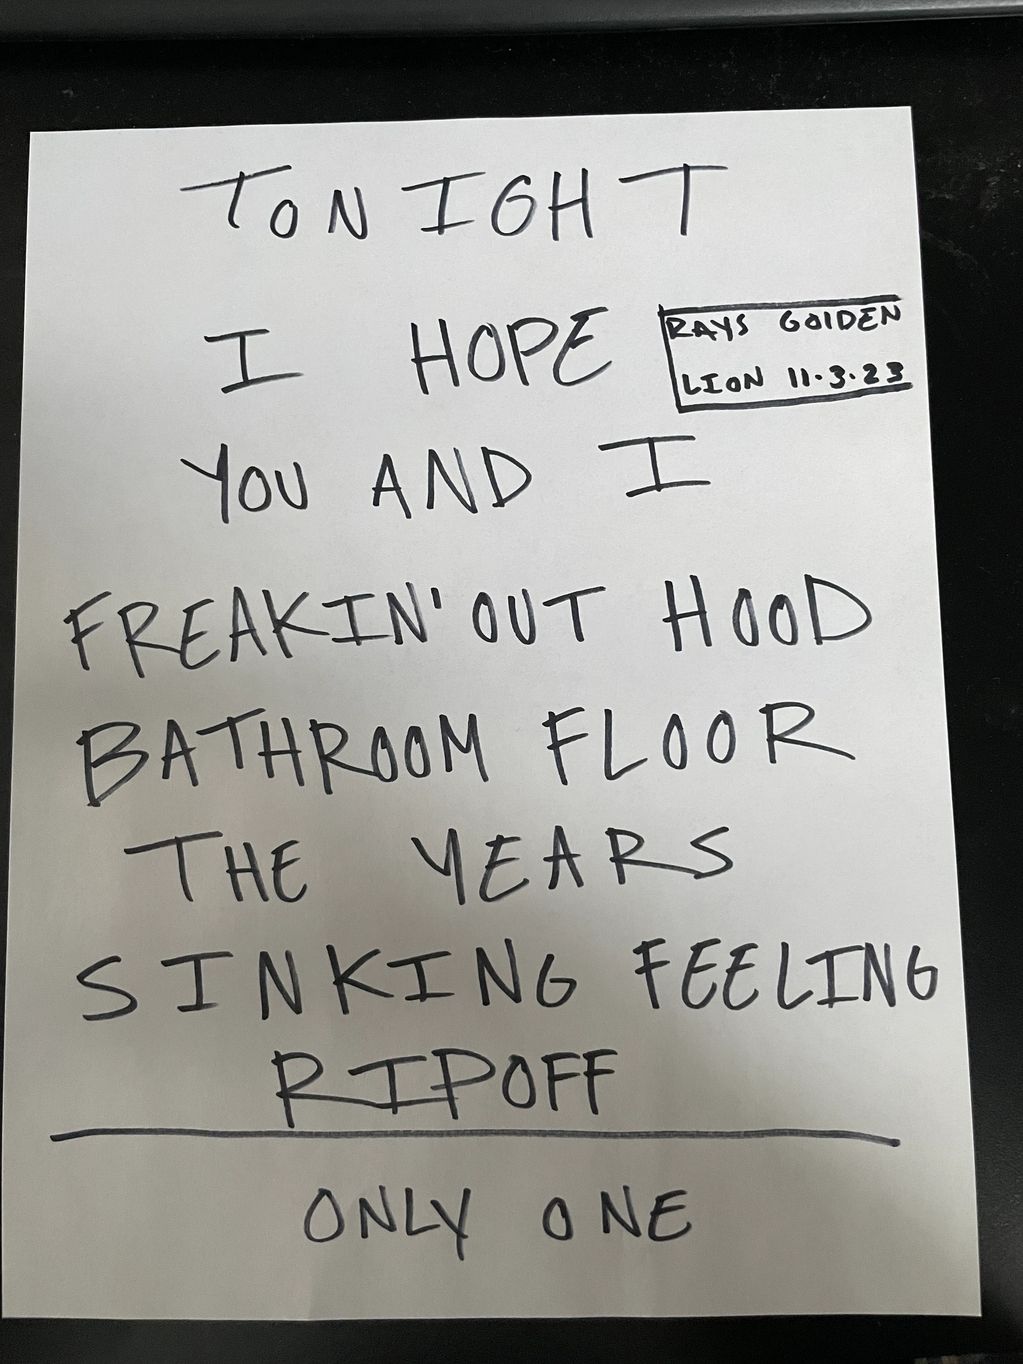 TONIGHT
I HOPE
RAYS GOLDEN
LION 11.3.23
YOU AND I
FREAKIN' OUT HOOD
BATHROOM FLOOR
THE YEARS
SINKING FEELING
RIPOFF
ONLY ONE